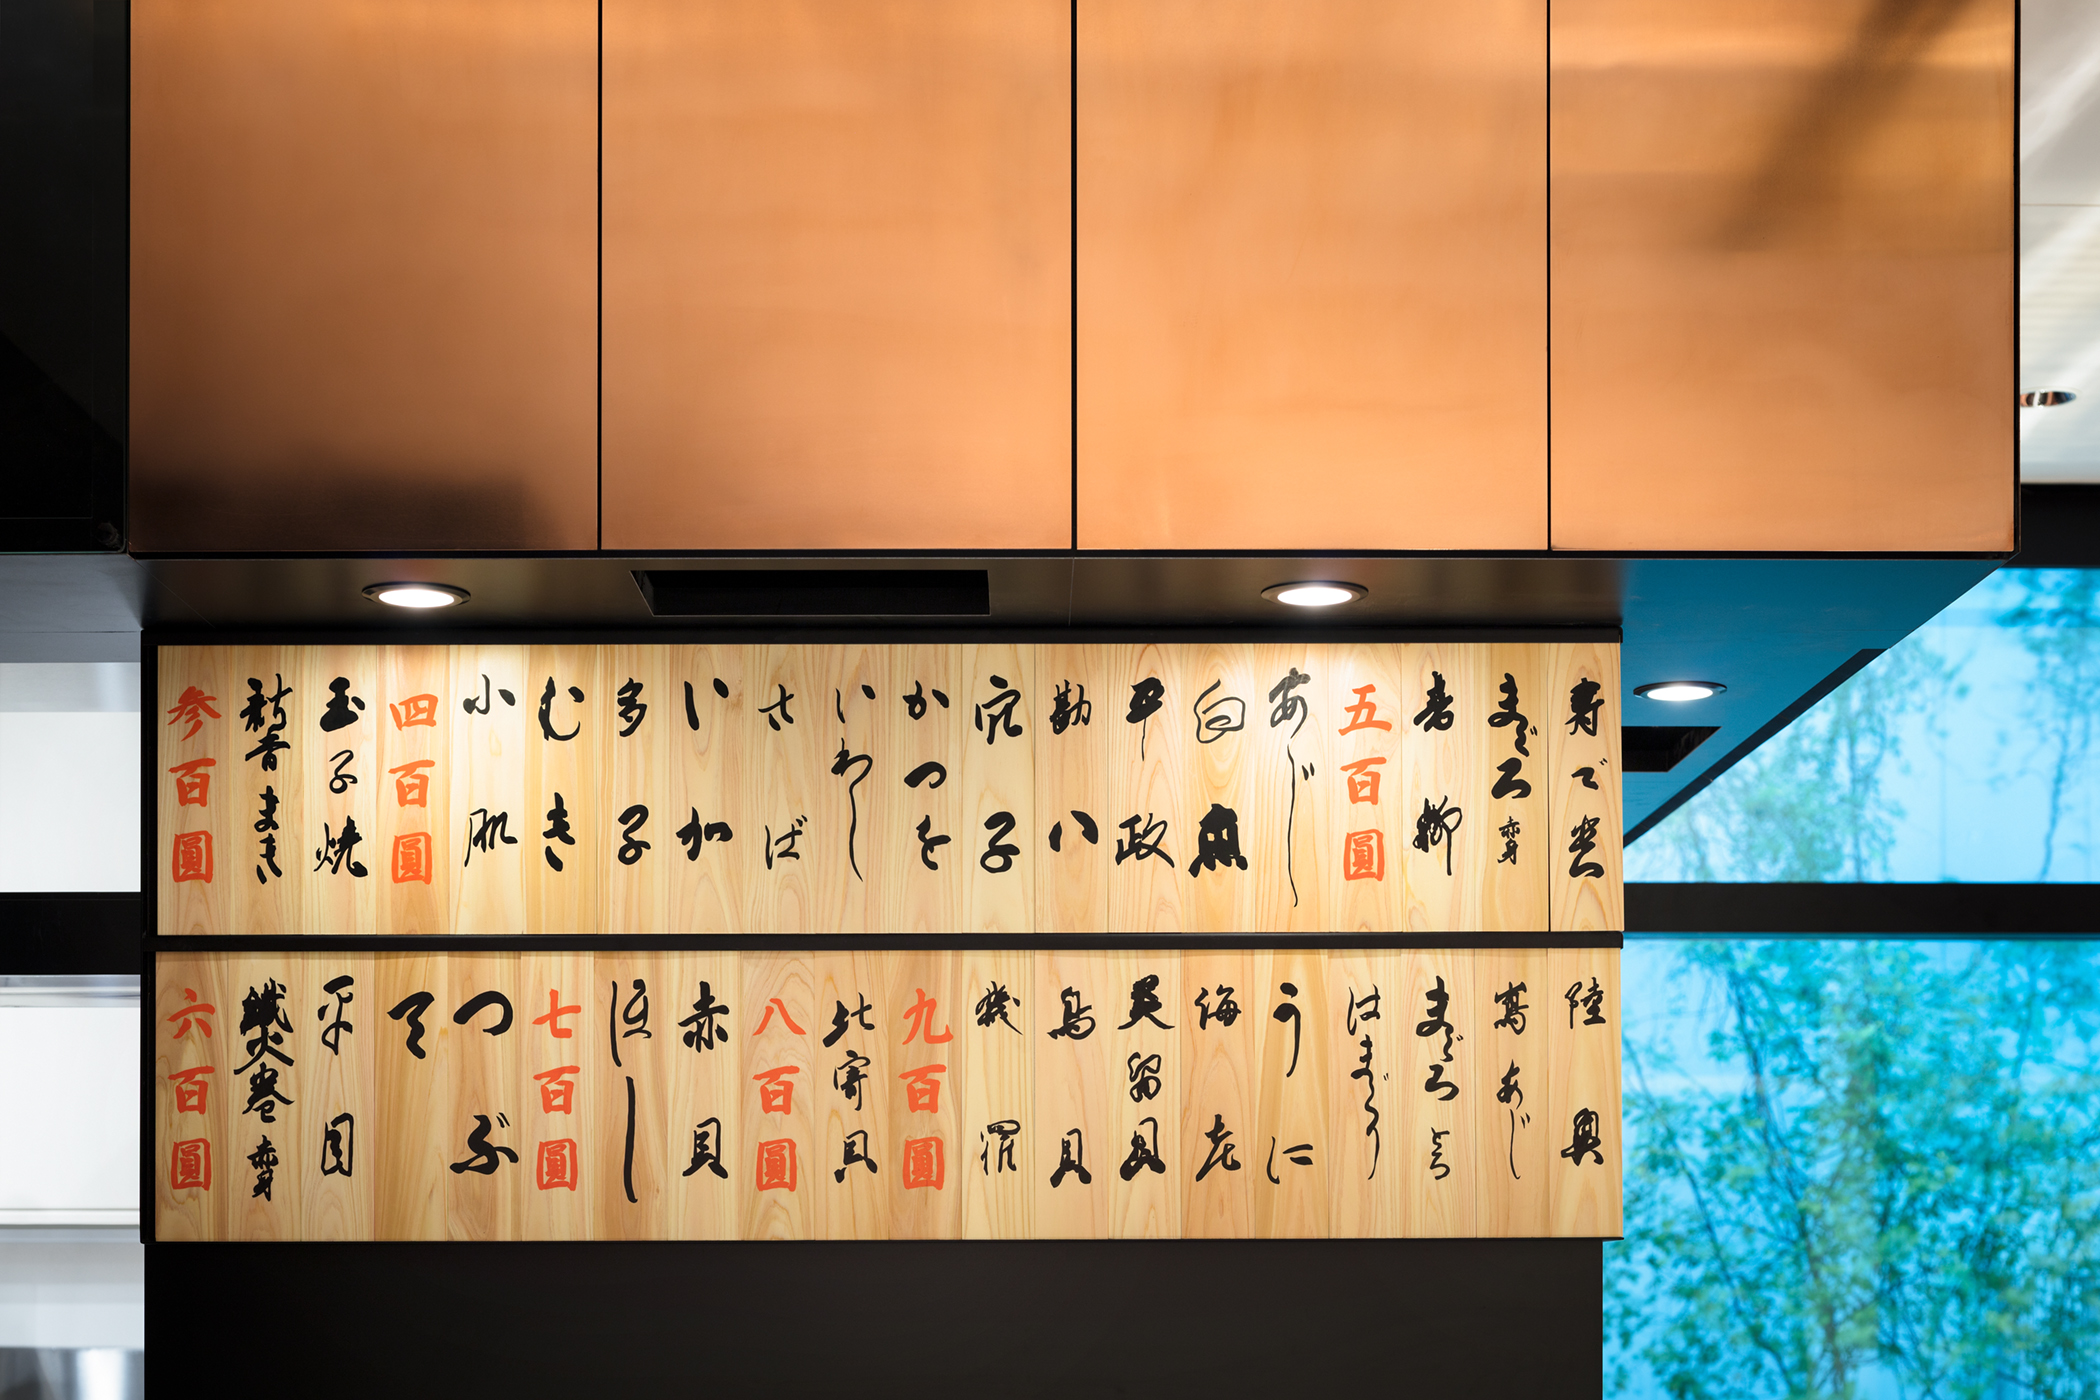 まぐろ赤身
青柳
五百圓
あじ
白魚
平政
勘八
穴子
かつを
いわし
さば
い加
多子
むき
小肌
四百圓
玉子焼
新香まき
参百圓
陸奥
あじ
まぐろとろ
はまぐり
うに
海老
美留貝
鳥貝
九百圓
北寄貝
八百圓
赤貝
ほし
七百圓
つぶ
平目
鐵火巻赤身
六百圓